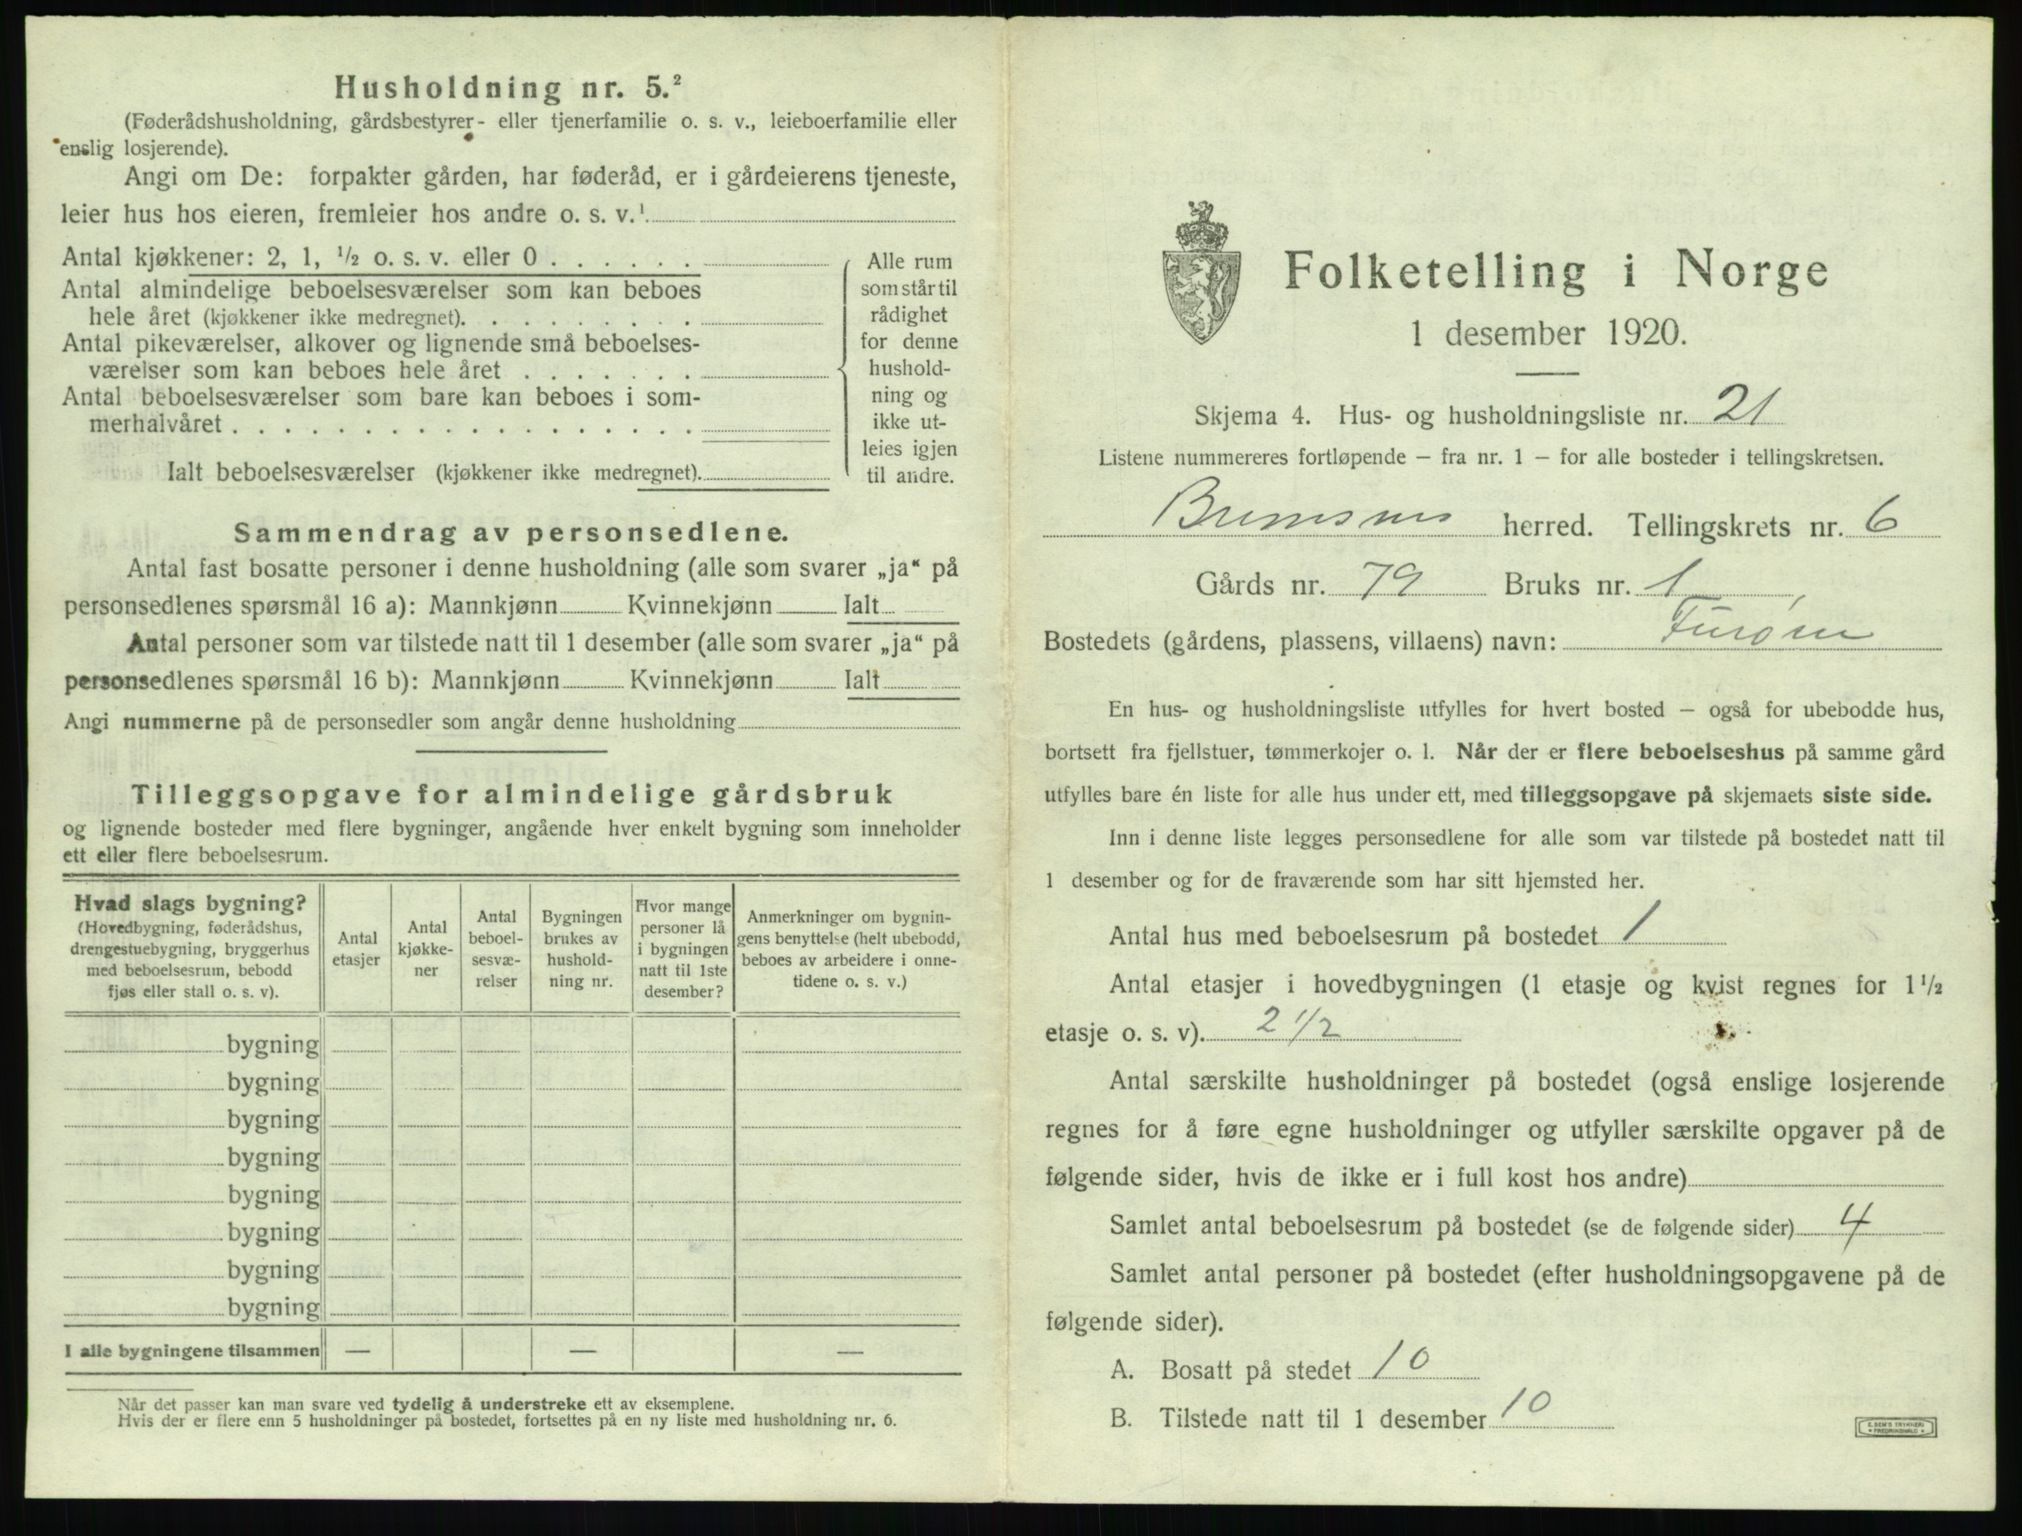 Husholdning nr. 5.²
(Føderådshusholdning, gårdsbestyrer- eller tjenerfamilie o. s. v., leieboerfamilie eller
enslig losjerende).
Angi om De: forpakter gården, har føderåd, er i gårdeierens tjeneste,
leier hus hos eieren, fremleier hos andre o. s. v.¹
Antal kjøkkener: 2, 1, ½ o. s. v. eller 0 . . . . . .
Antal almindelige beboelsesværelser som kan beboes
hele året (kjøkkener ikke medregnet). . . . . . . . .
Antal pikeværelser, alkover og lignende små beboelses-
værelser som kan beboes hele året . . . . . . .
Antal beboelsesværelser som bare kan beboes i som-
merhalvåret . . . . . . . . . . . . . . . . . .
Ialt beboelsesværelser (kjøkkener ikke medregnet).
Alle rum
som står til
rådighet
for denne
hushold-
ning og
ikke ut-
leies igjen
til andre.
Sammendrag av personsedlene.
Antal fast bosatte personer i denne husholdning (alle som svarer „ja“ på
personsedlenes spørsmål 16 a): Mannkjønn Kvinnekjønn Ialt
Antal personer som var tilstede natt til 1 desember (alle som svarer „ja“ på
personsedlenes spørsmål 16 b): Mannkjønn Kvinnekjønn Ialt
Angi nummerne på de personsedler som angår denne husholdning
Tilleggsopgave for almindelige gårdsbruk
og lignende bosteder med flere bygninger, angående hver enkelt bygning som inneholder
ett eller flere beboelsesrum.
Hvad slags bygning?
(Hovedbygning, føderådshus,
drengestuebygning, bryggerhus
med beboelsesrum, bebodd
fjøs eller stall o. s. v).
Antal
etasjer
Antal
kjøkke-
ner
Antal
beboel-
sesvæ-
relser
Bygningen
brukes av
hushold-
ning nr.
Hvor mange
personer lå
i bygningen
natt til 1ste
desember?
Anmerkninger om bygnin-
gens benyttelse (helt ubebodd,
beboes av arbeidere i onne-
tidene o. s. v.)
bygning
bygning
bygning
bygning
bygning
bygning
bygning
bygning
I alle bygningene tilsammen — — —
Når det passer kan man svare ved tydelig å understreke ett av eksemplene.
Hvis der er flere enn 5 husholdninger på bostedet, fortsettes på en ny liste med husholdning nr. 6.
Folketelling i Norge
1 desember 1920.
Skjema 4. Hus- og husholdningsliste nr. 21
Listene nummereres fortløpende — fra nr. 1 — for alle bosteder i tellingskretsen.
Bremsnes herred. Tellingskrets nr. 6
Gårds nr. 79 Bruks nr. 1
Bostedets (gårdens, plassens, villaens) navn:
En hus- og husholdningsliste utfylles for hvert bosted — også for ubebodde hus,
bortsett fra fjellstuer, tømmerkojer o. l. Når der er flere beboelseshus på samme gård
utfylles bare én liste for alle hus under ett, med tilleggsopgave på skjemaets siste side.
Inn i denne liste legges personsedlene for alle som var tilstede på bostedet natt til
1 desember og for de fraværende som har sitt hjemsted her.
Antal hus med beboelsesrum på bostedet 1
Antal etasjer i hovedbygningen (1 etasje og kvist regnes for 1½
etasje o. s. v). 2 1/2
Antal særskilte husholdninger på bostedet (også enslige losjerende
regnes for å føre egne husholdninger og utfyller særskilte opgaver på de
følgende sider, hvis de ikke er i full kost hos andre)
Samlet antal beboelsesrum på bostedet (se de følgende sider) 4
Samlet antal personer på bostedet (efter husholdningsopgavene på de
følgende sider).
A. Bosatt på stedet 10
B. Tilstede natt til 1 desember 10
E. SEM'S TRYKKERI
FREDRIKSHALD